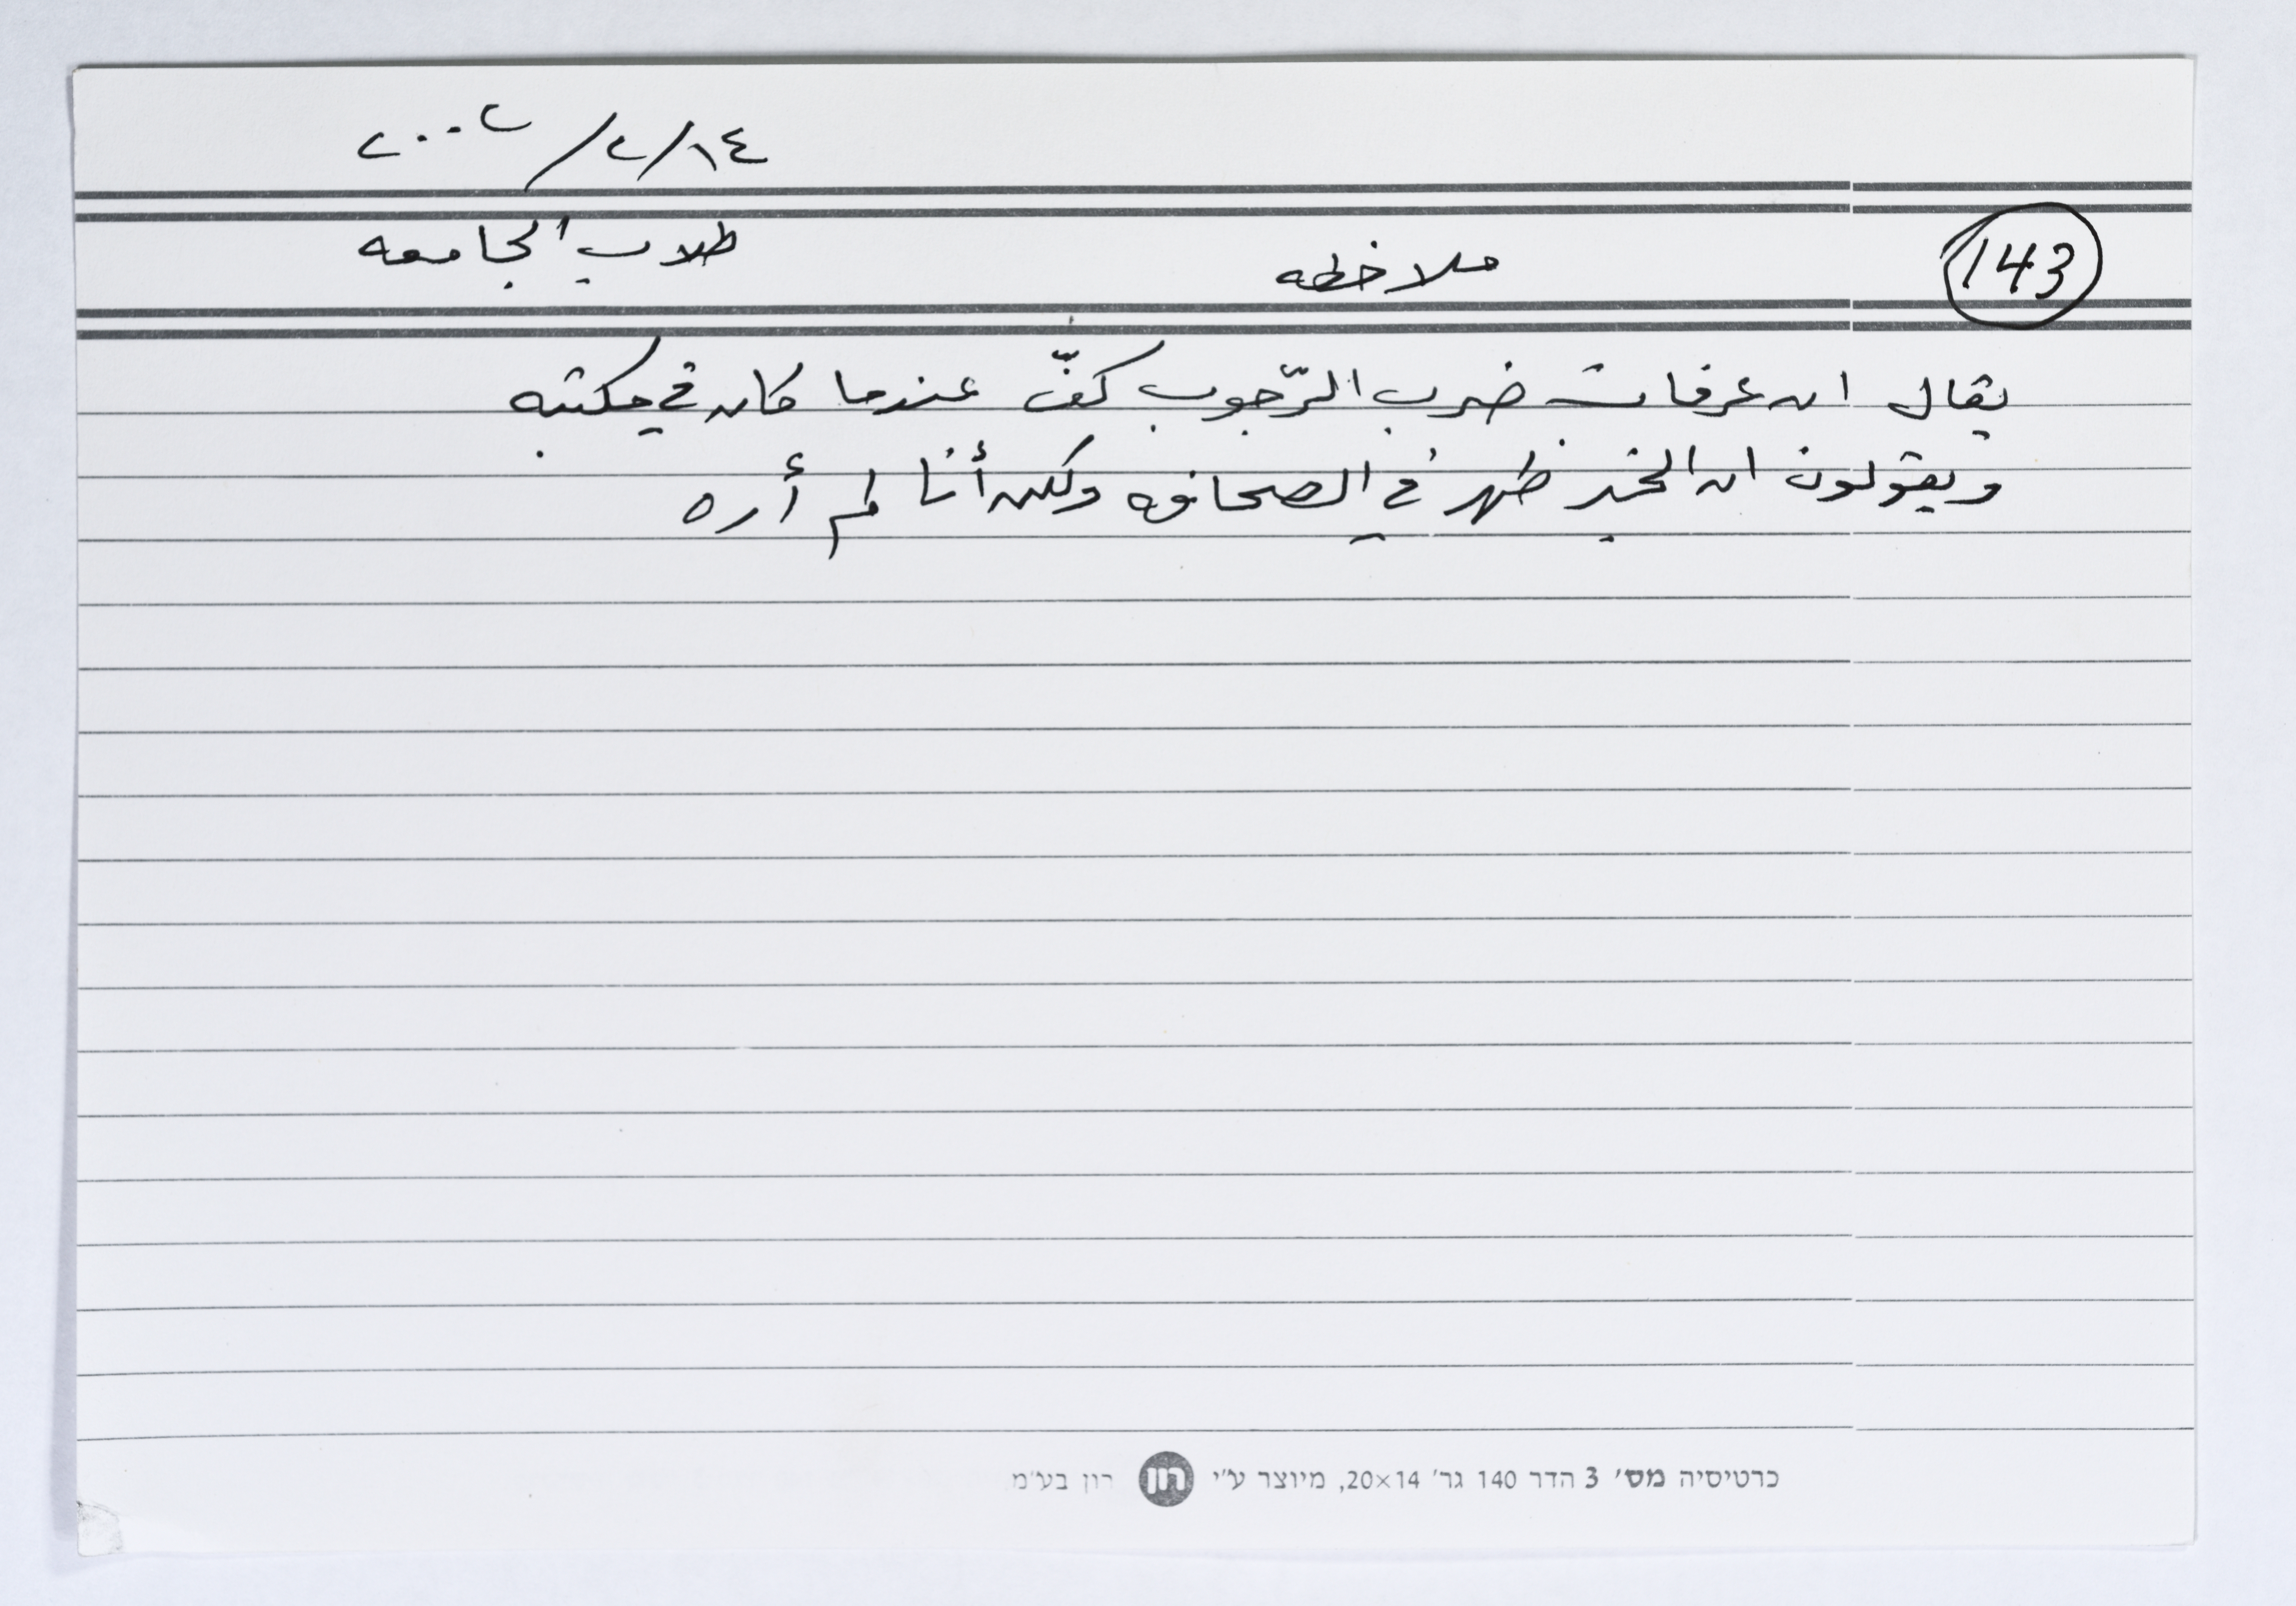 ١٤/٢/٢٠٠٢
143 ملاحظه طلاب الجامعه
يقال ان عرفات ضرب الرّجوب كفّ عندما كان في مكتبه
ويقولون ان الخبر ظهر في الصحافه ولكن أنا لم أره
כרטיסיה מס׳ 3 הדר 140 גר׳ 20×14, מיוצר ע״י רון רון בע״מ